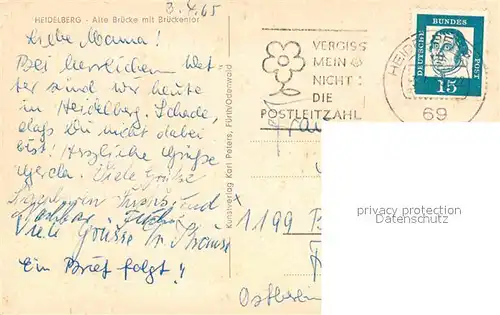 3.4.65
HEIDELBERG - Alte Brücke mit Brückentor
Liebe Mamma!
Bei herrlichem Wet-
ter sind wir heute
in Heidelberg. Schade,
daß Du nicht dabei
bist! Herzliche Grüße
Gerda. Viele Grüße
Viele Grüsse
Ein Brief folgt!
Kunstverlag Karl Peters, Fürth/Odenwald
VERGISS
MEIN
NICHT
DIE
POSTLEITZAHL
HEIDELBERG
69
DEUTSCHE BUNDESPOST
15
Frau
1199
privacy protection
Datenschutz